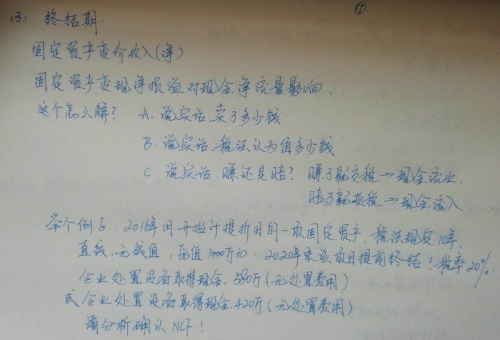 (3) 终结期 ⑦
固定资产变价收入(净)
固定资产变现净损益对现金净流量影响
这个怎么解? A. 说实话 卖了多少钱
B. 说实话 税法认为值多少钱
C. 说实话 赚还是赔? 赚了就交税→现金流出
赔了就抵税→现金流入
举个例子: 2016年开始计提折旧的一项固定资产, 税法规定10年,
直线、无残值, 原值1000万元. 2020年末该项目提前终结! 税率20%
企业处置设备取得现金580万(无处置费用)
或企业处置设备取得现金420万(无处置费用)
请分析确认NCF!